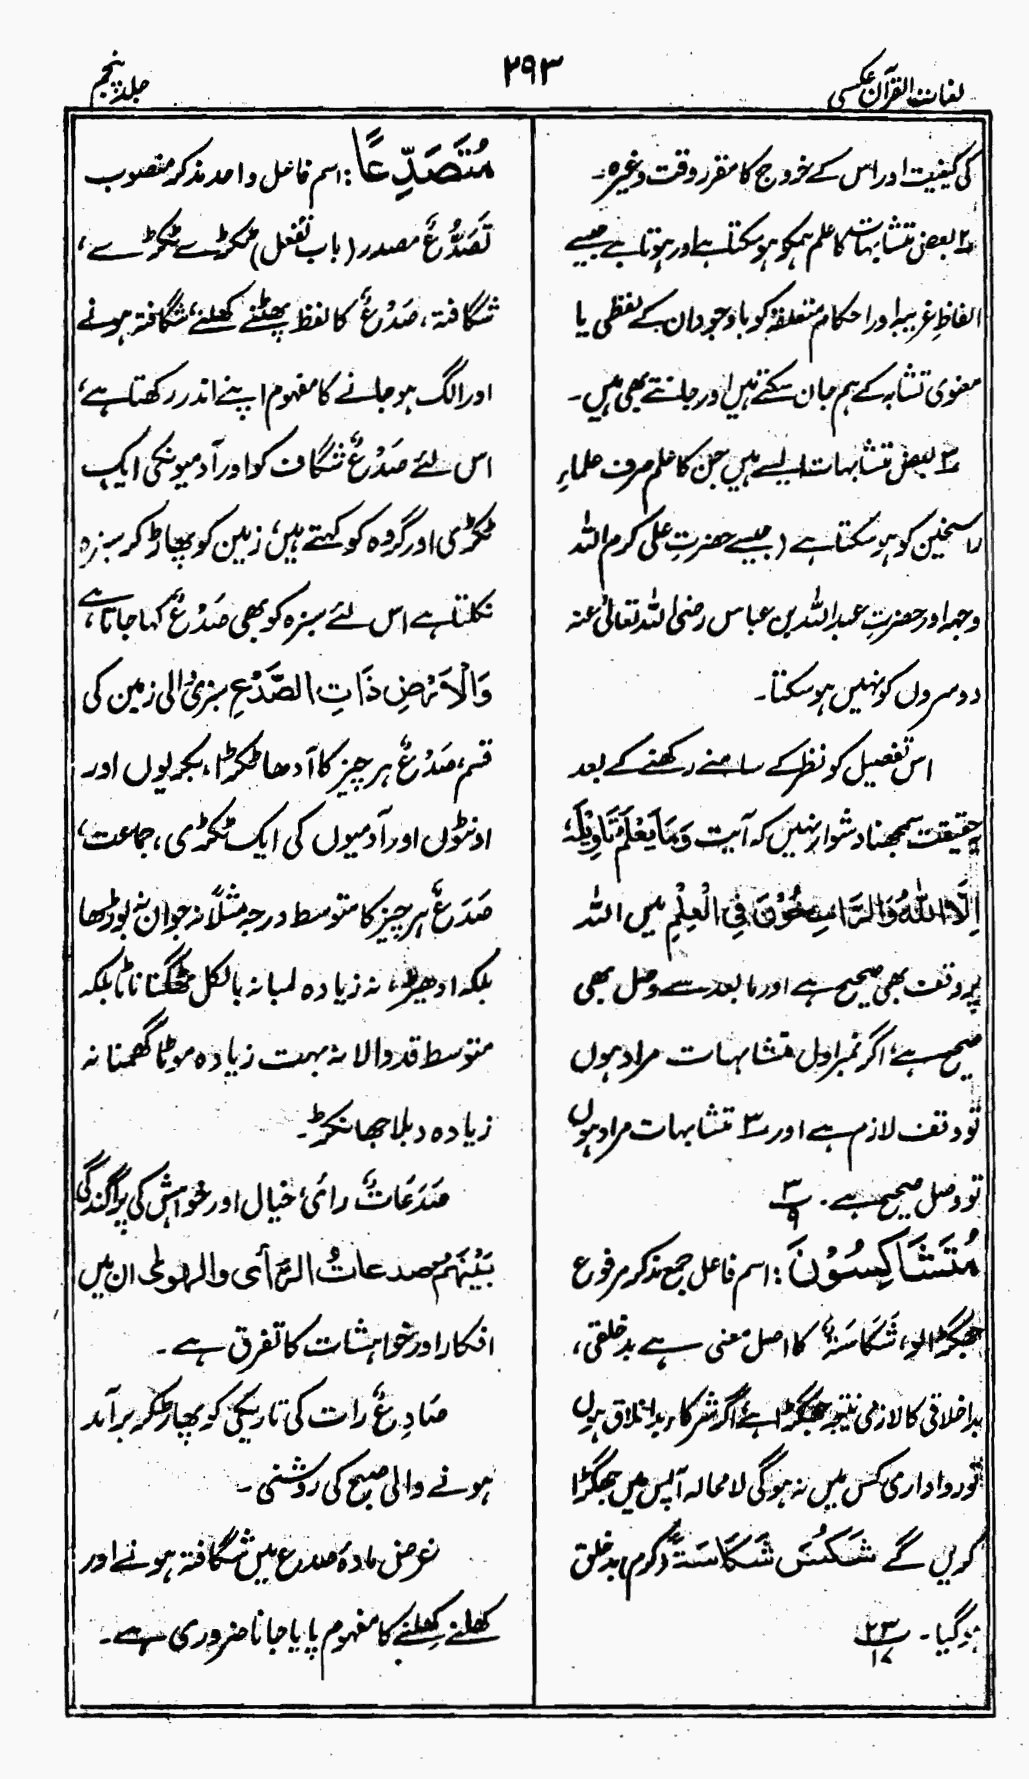 لغات القرآن عکسی
۲۹۳
جلد پنجم
کی کیفیت اور اس کے خروج کا مقرر وقت وغیرہ۔
۲ بعض متشابہات کا علم ہمکو ہو سکتا ہے اور ہوتا ہے جیسے
الفاظِ غریبہ اور احکام متعلقہ کو باوجود ان کے لفظی یا
معنوی تشابہ کے ہم جان سکتے ہیں اور جانتے بھی ہیں۔
۳ بعض متشابہات ایسے ہیں جن کا علم صرف علماءِ
راسخین کو ہو سکتا ہے (جیسے حضرتِ علی کرم اللہ
وجہہ اور حضرتِ عبداللہ بن عباس رضی اللہ تعالیٰ عنہ
دوسروں کو نہیں ہو سکتا۔
اس تفصیل کو نظر کے سامنے رکھنے کے بعد
حقیقت سمجھنا دشوار نہیں کہ آیت وَمَا یَعْلَمُ تَاوِیْلَہٗ
اِلَّا اللّٰہُ وَالرَّاسِخُوْنَ فِی الْعِلْمِ میں اللہ
پر وقف بھی صحیح ہے اور مابعد سے وصل بھی
صحیح ہے، اگر نمبر اول متشابہات مراد ہوں
تو وقف لازم ہے اور ۳ متشابہات مراد ہوں
تو وصل صحیح ہے۔ ۳/۹
مُتَشَاکِسُوْنَ: اسم فاعل جمع مذکر مرفوع
جھگڑالو، شَکَاسَۃٌ کا اصل معنی ہے بدخلقی،
بداخلاقی کا لازمی نتیجہ جھگڑا ہے، اگر شرکاء بداخلاق ہوں
تو رواداری کس میں نہ ہوگی لامحالہ آپس میں جھگڑا
کریں گے شَکُسَ شَکَاسَۃً (کرم) بدخلق
ہوگیا۔ ۲۳/۱۷
مُتَصَدِّعًا: اسم فاعل واحد مذکر منصوب
تَصَدُّعٌ مصدر (باب تفعل) ٹکڑے ٹکڑے،
شگافتہ، صَدْعٌ کا لفظ پھٹنے کھلنے، شگافتہ ہونے
اور الگ ہو جانے کا مفہوم اپنے اندر رکھتا ہے،
اس لئے صَدْعٌ شگاف کو اور آدمیونکی ایک
ٹکڑی اور گروہ کو کہتے ہیں، زمین کو پھاڑ کر سبزہ
نکلتا ہے اس لئے سبزہ کو بھی صَدْعٌ کہا جاتا ہے،
وَالْاَرْضِ ذَاتِ الصَّدْعِ سبزی والی زمین کی
قسم، صَدْعٌ ہر چیز کا آدھا ٹکڑا، بکریوں اور
اونٹوں اور آدمیوں کی ایک ٹکڑی، جماعت،
صَدَعٌ ہر چیز کا متوسط درجہ مثلاً نہ جوان نہ بوڑھا
بلکہ ادھیڑ، نہ زیادہ لمبا نہ بالکل ٹھگنا ناٹا بلکہ
متوسط قد والا نہ بہت زیادہ موٹا گھمنا نہ
زیادہ دبلا جھانکڑ۔
صَدَعَاتٌ رائی خیال اور خواہش کی پراگندگی
بَیْنَہُمْ صدعاتُ الرَّأی والہوٰی ان میں
افکار اور خواہشات کا تفرق ہے۔
صَادِعٌ رات کی تاریکی کو پھاڑ کر برآمد
ہونے والی صبح کی روشنی۔
غرض مادۂ صدع میں شگافتہ ہونے اور
کھلنے کھِلنے کا مفہوم پایا جانا ضروری ہے۔